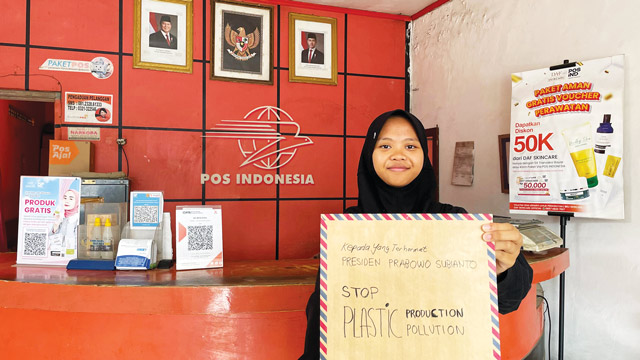 PAKETPOS
PENGADUAN PELANGGAN
NARKOBA
POS
AJa!
POS INDONESIA
PRODUK
GRATIS
Kepada Yang Terhormat
PRESIDEN PRABOWO SUBIANTO
STOP
PLASTIC PRODUCTION
POLLUTION
OAF POS IND
PAKET AMAN
GRATIS VOUCHER
PERAWATAN
Dapatkan
Diskon
50K
dari OAF SKINCARE
50.000